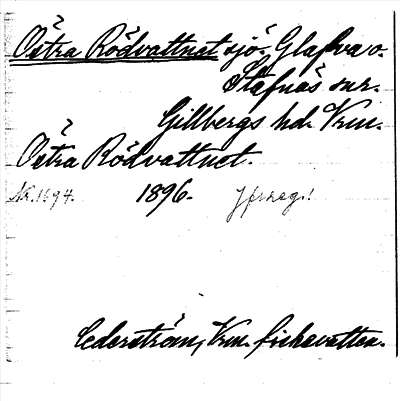 Östra Rödvattnet sjö. Glafva o.
Stafnäs snr.
Gillbergs hd. Vrm.
Östra Rödvattnet.
Nr. 1694. 1896. Jfr reg.!
Cederström, Vrm. fiskevatten.